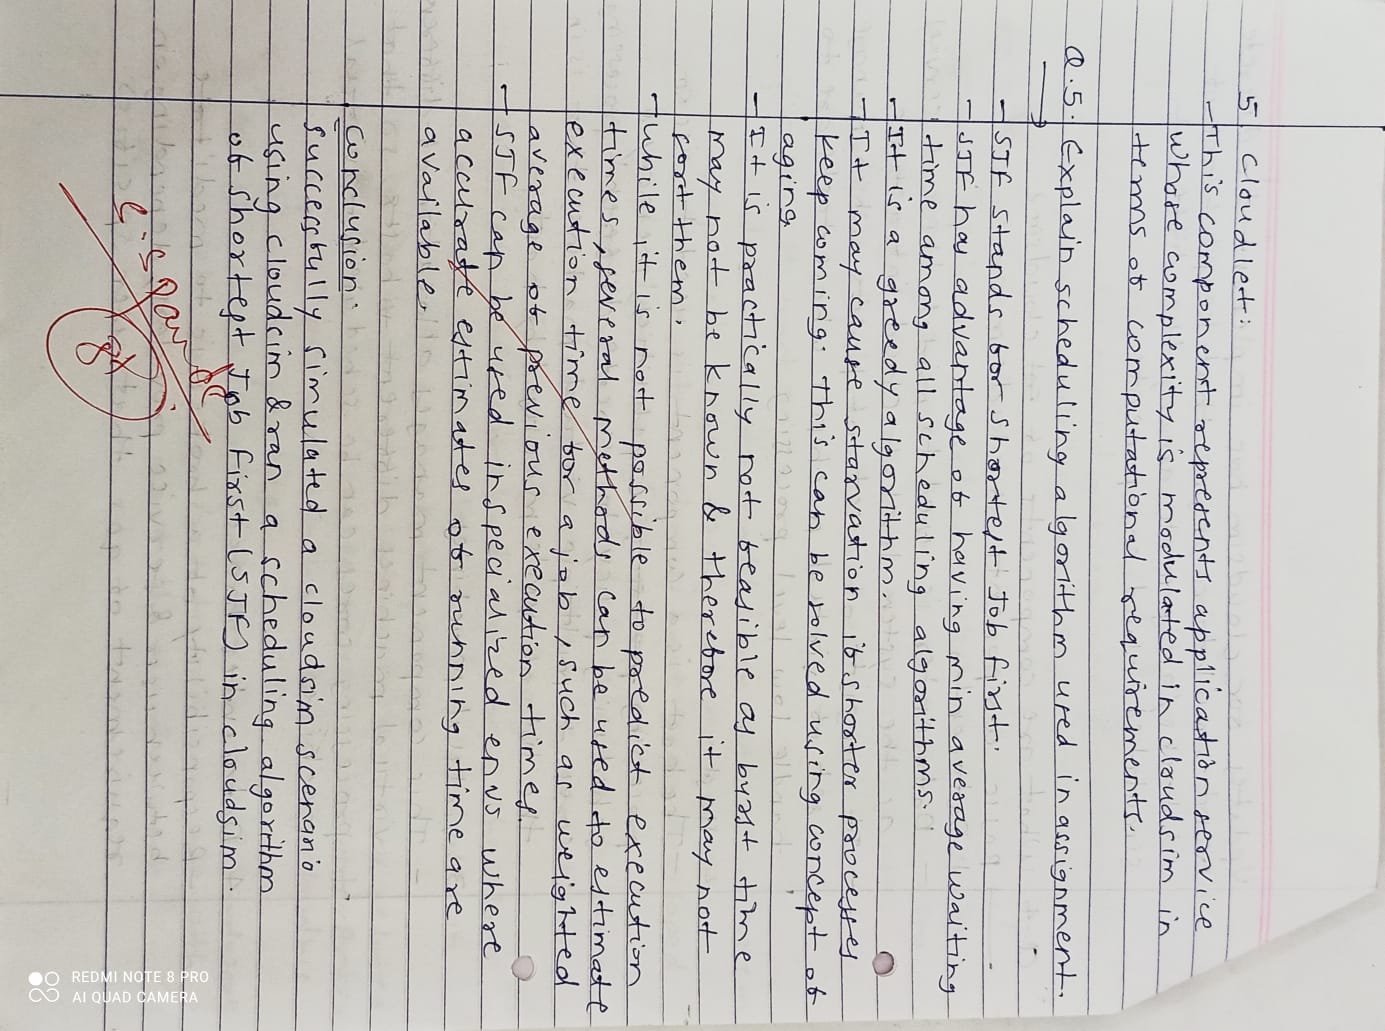 5. Cloudlet:
- This component represents application service
whose complexity is modulated in cloudsim in
terms of computational requirements.
Q.5. Explain scheduling algorithm used in assignment.
- SJF stands for shortest Job first.
- SJF has advantage of having min average waiting
time among all scheduling algorithms.
- It is a greedy algorithm.
- It may cause starvation if shorter processes
keep coming. This can be solved using concept of
aging.
- It is practically not feasible as burst time
may not be known & therefore it may not
sort them.
- while it is not possible to predict execution
times, several methods can be used to estimate
execution time for a job, such as weighted
average of previous execution times.
- SJF can be used in specialized envs where
accurate estimates of running time are
available.
Conclusion:
Successfully simulated a cloudsim scenario
using cloudsim & ran a scheduling algorithm
of shortest Job first (SJF) in cloudsim.
REDMI NOTE 8 PRO
AI QUAD CAMERA